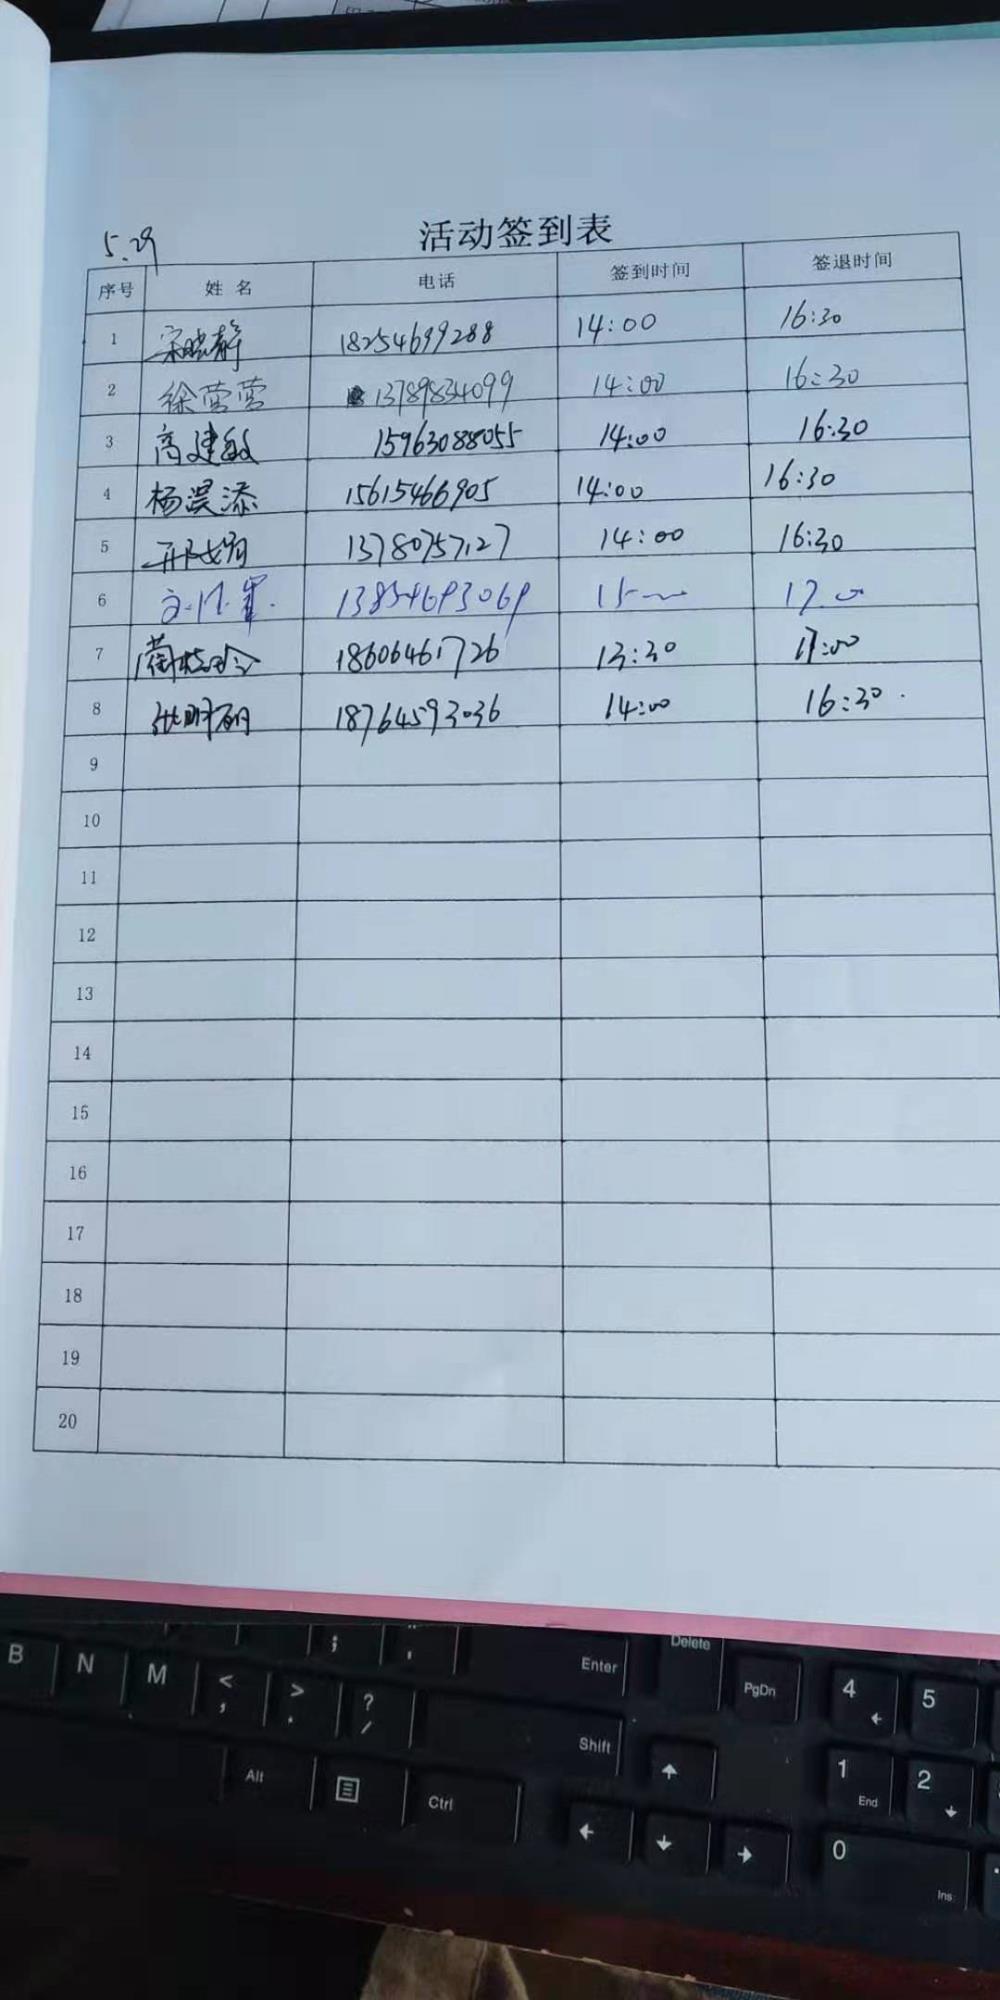 5.29
活动签到表
序号 姓名 电话 签到时间 签退时间
1 宋晓静 18254699288 14:00 16:30
2 徐莹莹 13789834099 14:00 16:30
3 高建敏 15963088055 14:00 16:30
4 杨淏添 15615466905 14:00 16:30
5 13780757127 14:00 16:30
6 13854693069 17.00
7 18606461726 13:30 17:00
8 张明硕 18764593036 14:00 16:30
9
10
11
12
13
14
15
16
17
18
19
20
; "
B N M < , > . ? / ' Enter Delete PgDn 4 5
Shift 1 End 2
Alt Ctrl 0 Ins